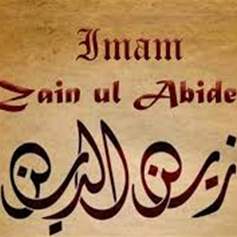 Imam
Zain ul Abide
زين الدين